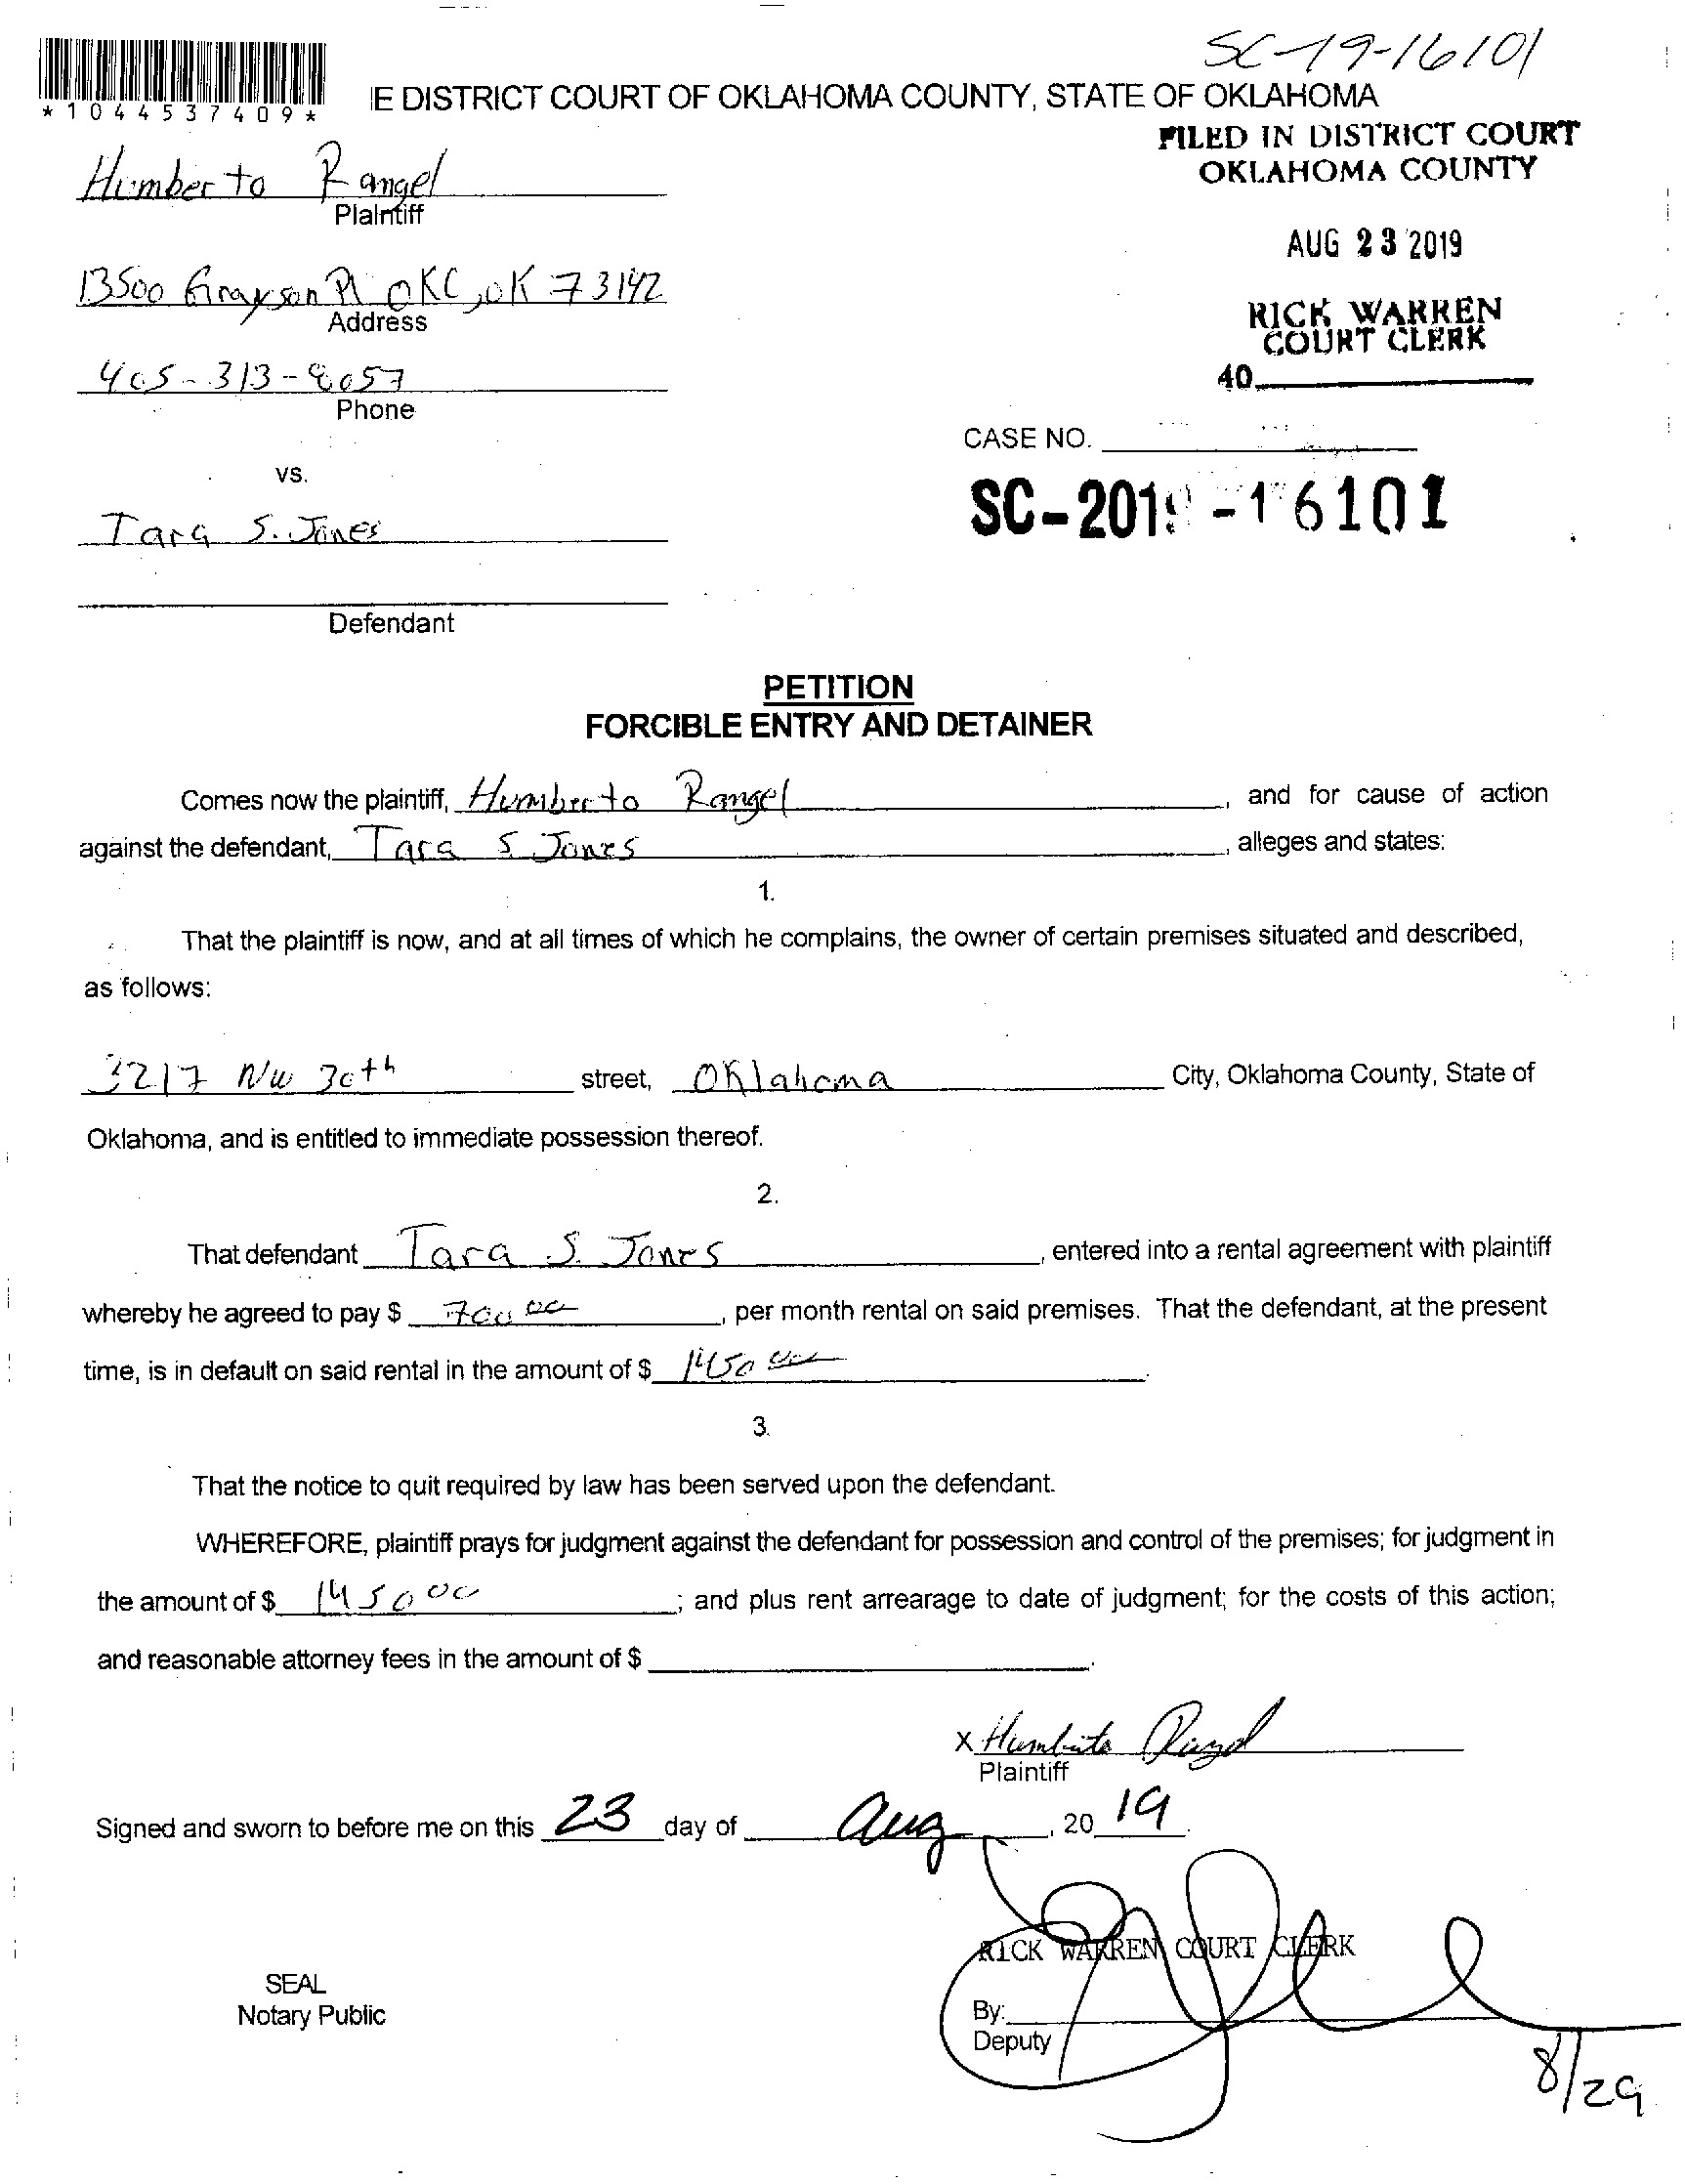 SC-19-16101
*1044537409*
IE DISTRICT COURT OF OKLAHOMA COUNTY, STATE OF OKLAHOMA
FILED IN DISTRICT COURT
OKLAHOMA COUNTY
Humberto Rangel
Plaintiff
AUG 23 2019
13500 Grayson Pl OKC, OK 73142
Address
RICK WARREN
COURT CLERK
405-313-8057
Phone
40
CASE NO.
vs.
SC-2019-16101
Tara S. Jones
Defendant
PETITION
FORCIBLE ENTRY AND DETAINER
Comes now the plaintiff, Humberto Rangel, and for cause of action
against the defendant, Tara S Jones, alleges and states:
1.
That the plaintiff is now, and at all times of which he complains, the owner of certain premises situated and described,
as follows:
3217 NW 30th street, Oklahoma City, Oklahoma County, State of
Oklahoma, and is entitled to immediate possession thereof.
2.
That defendant Tara S. Jones, entered into a rental agreement with plaintiff
whereby he agreed to pay $ 700 00, per month rental on said premises. That the defendant, at the present
time, is in default on said rental in the amount of $ 1450 00.
3.
That the notice to quit required by law has been served upon the defendant.
WHEREFORE, plaintiff prays for judgment against the defendant for possession and control of the premises; for judgment in
the amount of $ 1450 00; and plus rent arrearage to date of judgment; for the costs of this action;
and reasonable attorney fees in the amount of $
x Humberto Rangel
Plaintiff
Signed and sworn to before me on this 23 day of Aug, 20 19.
RICK WARREN COURT CLERK
SEAL
Notary Public
By:
Deputy
8/29